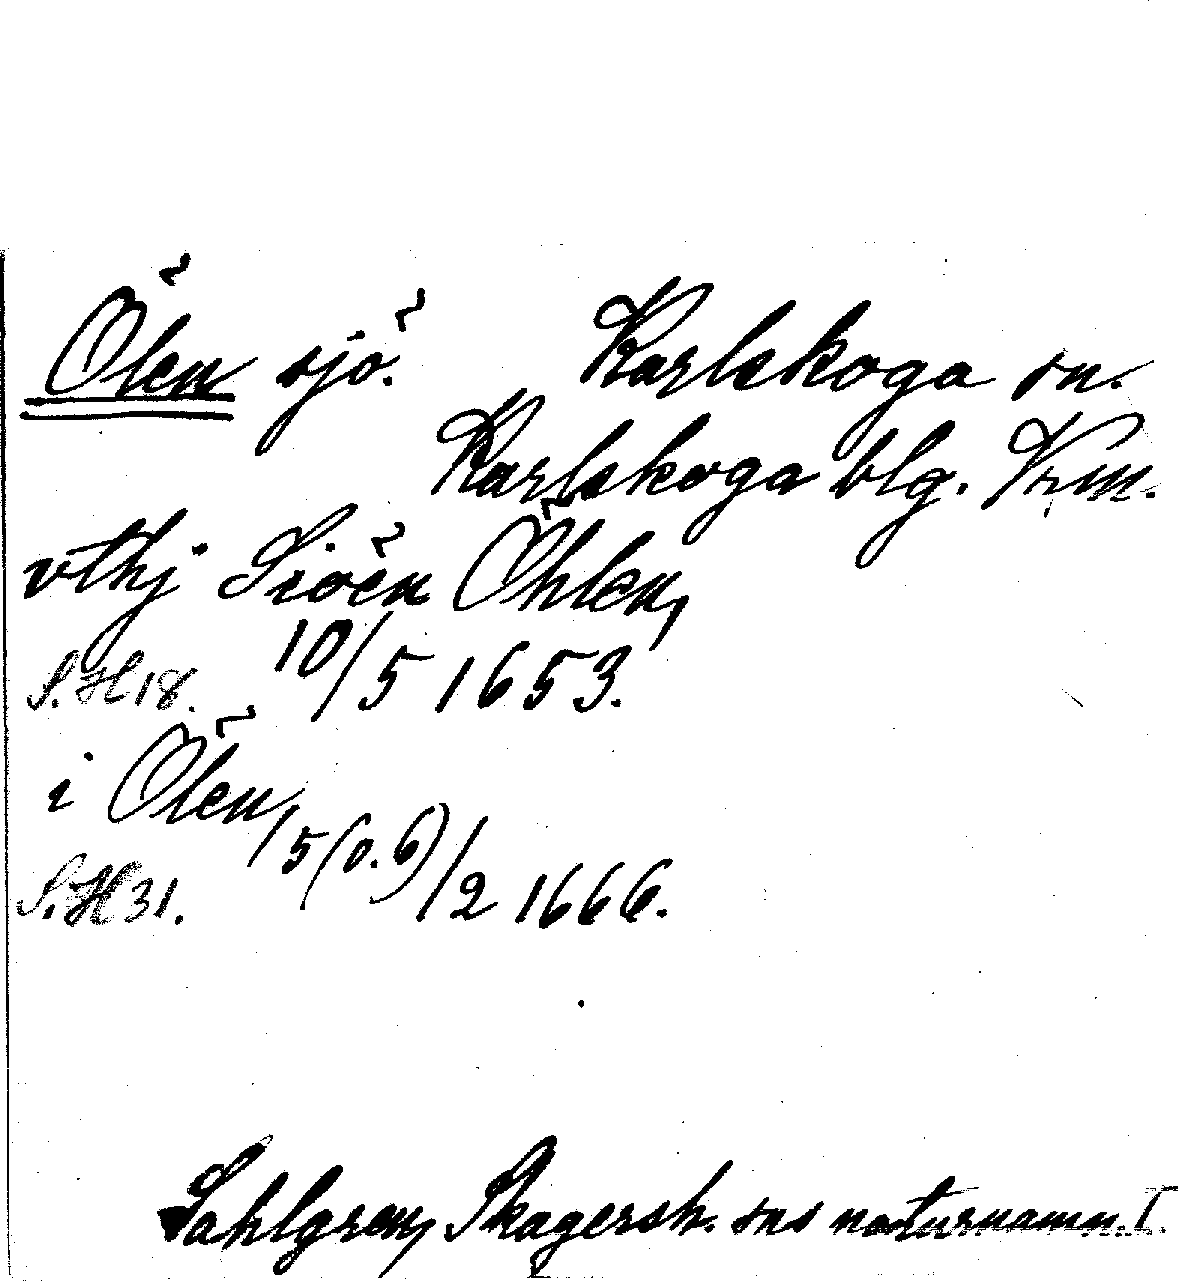 Ölen sjö. Karlskoga sn.
Karlskoga blg. Vrm.
vthj Siöen Öhlen,
S. H 18. 10/5 1653.
i Ölen, 5(o. 6)/2 1666.
S. H 31.
Sahlgren, Skagersh. sns naturnamn. I.